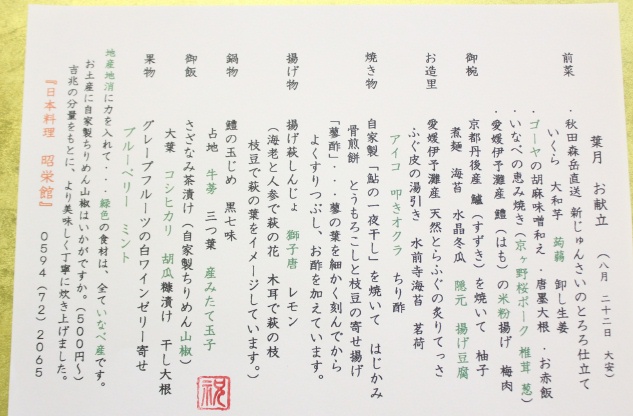 葉月 お献立 (八月 二十二日 大安)
前菜 ・秋田森岳直送 新じゅんさいのとろろ仕立て
いくら 大和芋 蒟蒻 卸し生姜
・ゴーヤの胡麻味噌和え ・唐墨大根 ・お赤飯
・いなべの恵み焼き(京ヶ野桜ポーク 椎茸 葱)
・愛媛伊予灘産 鱧(はも)の米粉揚げ 梅肉
御椀 京都丹後産 鱸(すずき)を焼いて 柚子
煮麺 海苔 水晶冬瓜 隠元 揚げ豆腐
お造里 愛媛伊予灘産 天然とらふぐの炙りてっさ
ふぐ皮の湯引き 水前寺海苔 茗荷
アイコ 叩きオクラ ちり酢
焼き物 自家製「鮎の一夜干し」を焼いて はじかみ
骨煎餅 とうもろこしと枝豆の寄せ揚げ
「蓼酢」・・蓼の葉を細かく刻んでから
よくすりつぶし、お酢を加えています。
揚げ物 揚げ萩しんじょ 獅子唐 レモン
(海老と人参で萩の花 木耳で萩の枝
枝豆で萩の葉をイメージしています。)
鍋物 鱧の玉じめ 黒七味
占地 牛蒡 三つ葉 産みたて玉子
御飯 さざなみ茶漬け(自家製ちりめん山椒)
大葉 コシヒカリ 胡瓜糠漬け 干し大根
果物 グレープフルーツの白ワインゼリー寄せ
ブルーベリー ミント
地産地消に力を入れて・・・緑色の食材は、全ていなべ産です。
お土産に自家製ちりめん山椒はいかがですか。(500円〜)
吉兆の分量をもとに、より美味しく丁寧に炊き上げました。
『日本料理 昭栄館』 0594(72)2065
祝